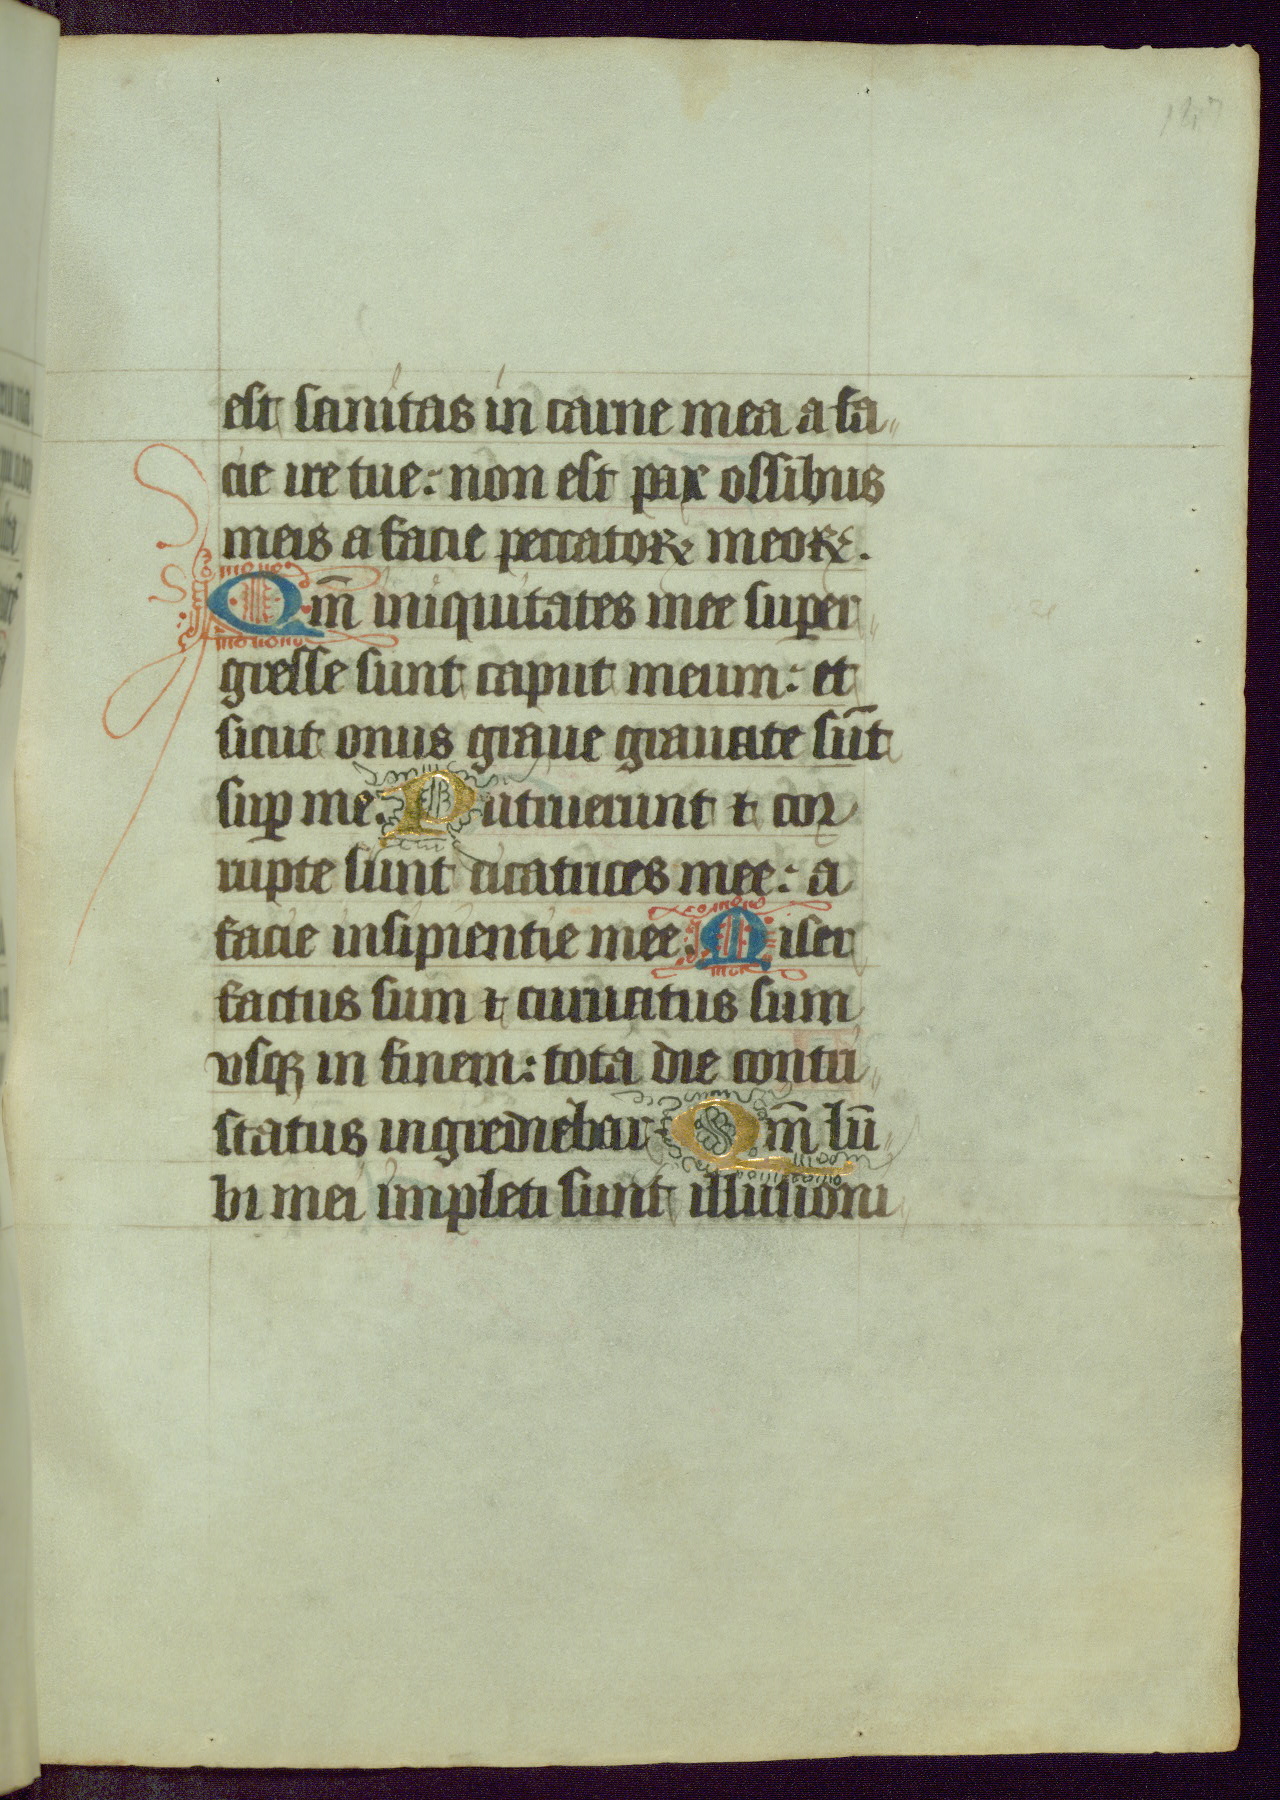 est sanitas in carne mea a fa„
cie ire tue: non est pax ossibus
meis a facie peccatoꝝ meoꝝ.
Qm̄ iniquitates mee super„
gresse sunt caput meum: et
sicut onus graue grauate sūt
suꝑ me. Putruerunt ⁊ cor
rupte sunt cicatrices mee: a
facie insipientie mee. Miser
factus sum ⁊ curuatus sum
vsqꝫ in finem: tota die contri„
status ingrediebar. Qm̄ lū
bi mei impleti sunt illusioni